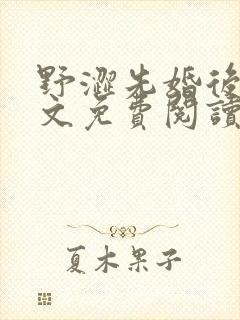 野澀先婚後
文免費閱讀
夏木果子